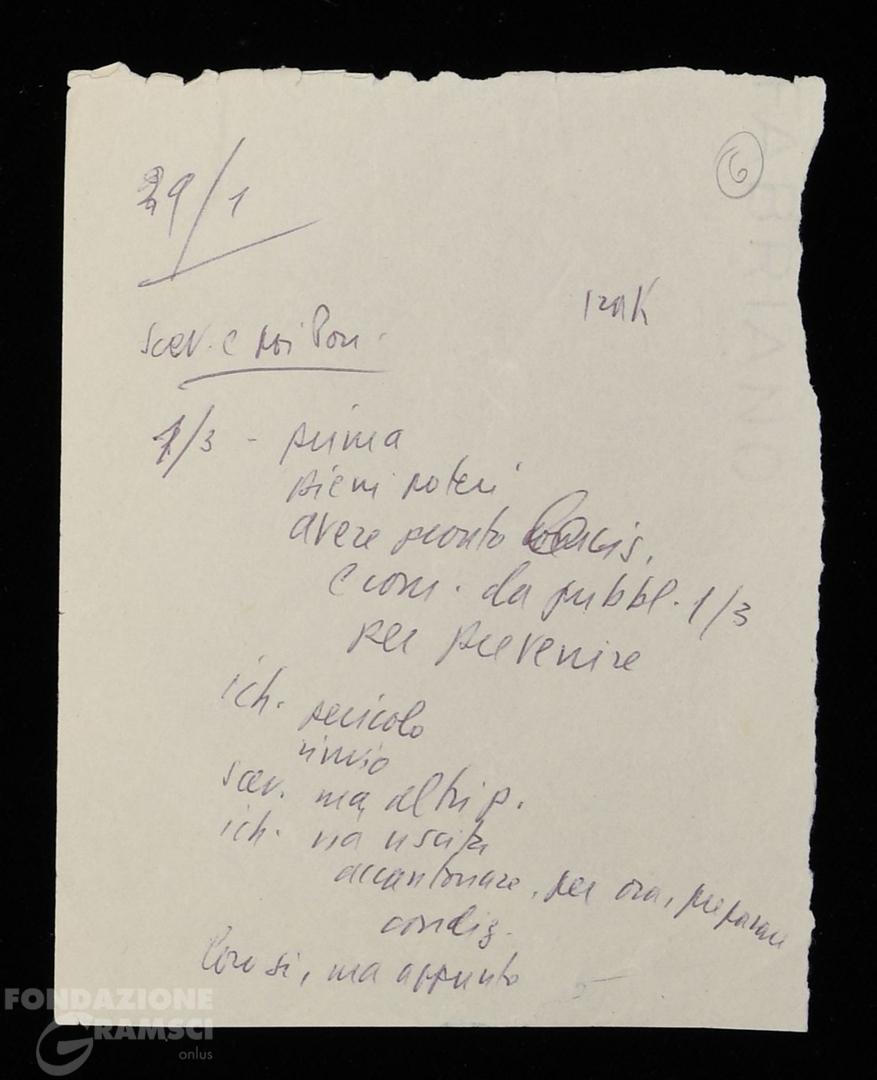 6
29/1
Izak
scev. e poi Pon.
1/3 - prima
pieni poteri
avere pronto
e com. da pubbl. 1/3
per prevenire
ich. pericolo
rinvio
scev. ma altri p.
ich. via uscita
accantonare, per ora, preparare
condiz.
loro si, ma appunto
FABRIANO
FONDAZIONE
GRAMSCI
onlus